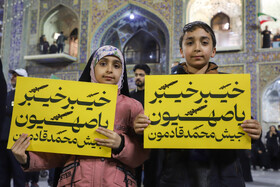 خیبر خیبر
یا صهیون
جیش محمد قادمون
خیبر خیبر
یا صهیون
جیش محمد قادمون